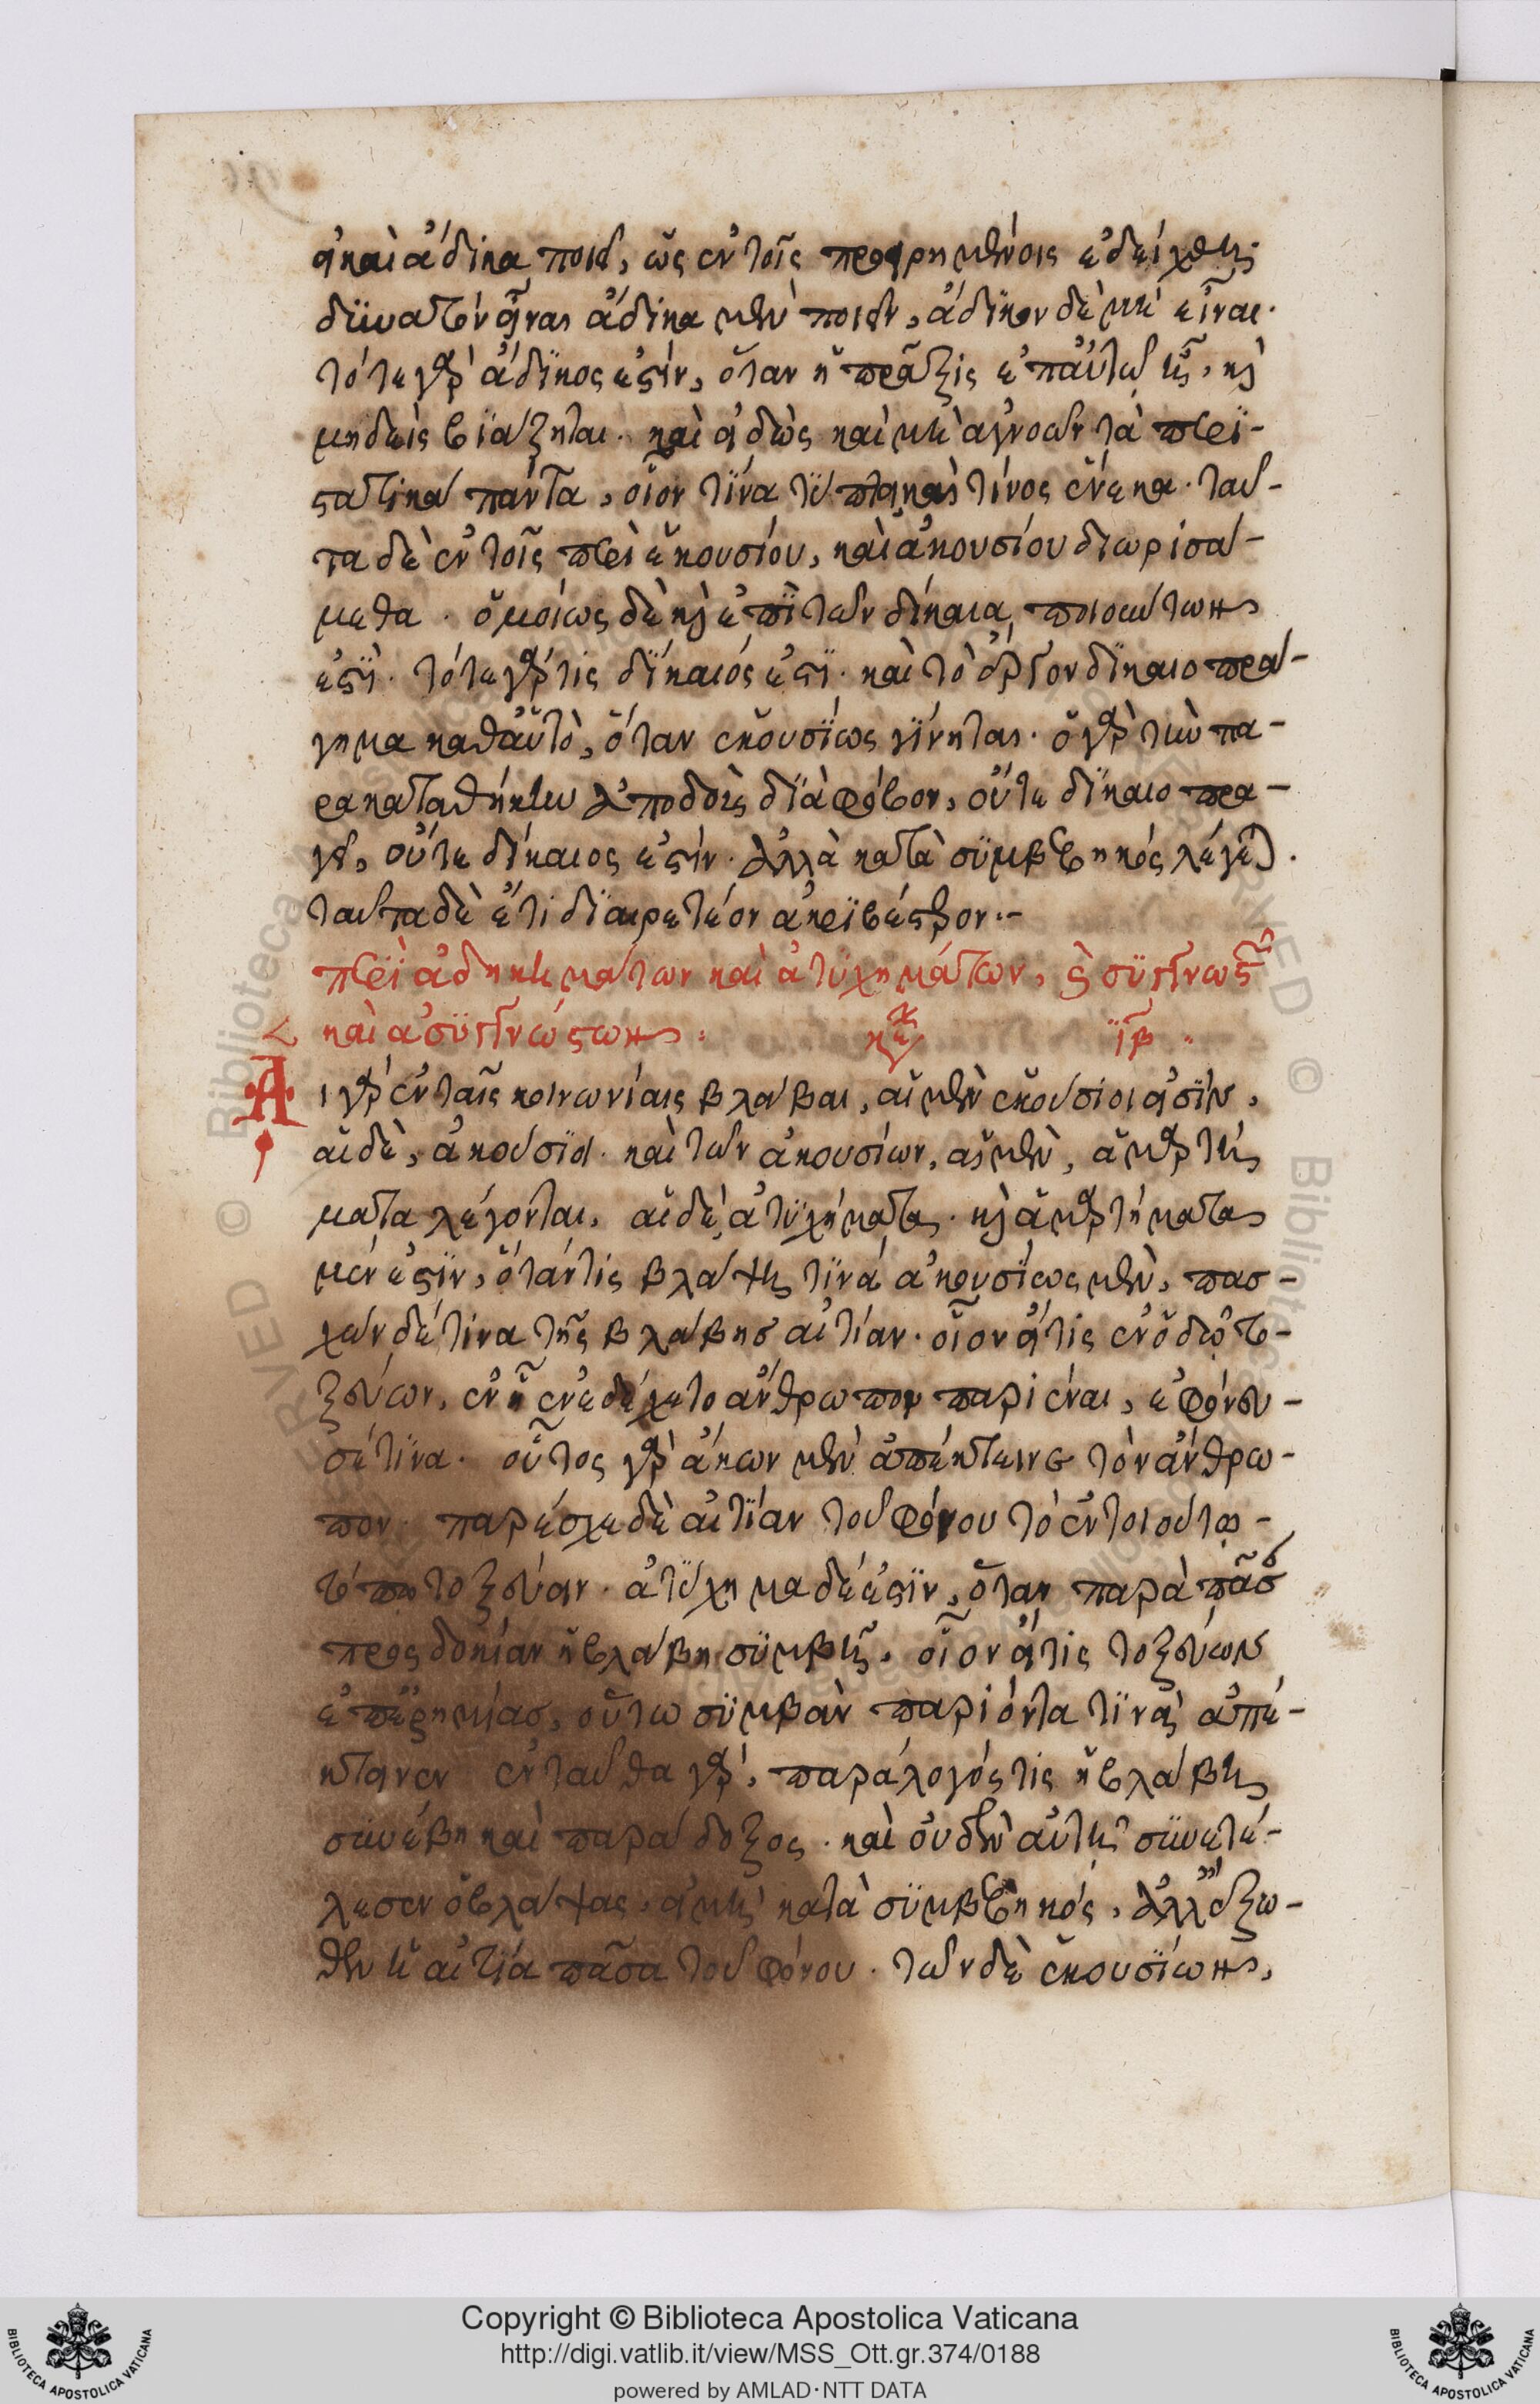 εἰ καὶ ἄδικα ποιεῖ, ὡς ἐν τοῖς προειρημένοις ἐδείχθη·
δυνατὸν εἶναι ἄδικα μὲν ποιεῖν, ἄδικον δὲ μὴ εἶναι.
τότε γὰρ ἄδικός ἐστιν, ὅταν ἡ πρᾶξις ἐπ' αὐτῷ ᾖ, καὶ
μηδεὶς βιάζηται. καὶ εἰδὼς καὶ μὴ ἀγνοῶν τὰ περι-
στατικὰ πάντα, οἷον τίνα τύπτει καὶ τίνος ἕνεκα. ταῦ-
τα δὲ ἐν τοῖς περὶ ἑκουσίου, καὶ ἀκουσίου διωρισά-
μεθα. ὁμοίως δὲ καὶ ἐπὶ τῶν δίκαια ποιούντων
ἐστί. τότε γάρ τις δίκαιός ἐστι. καὶ τὸ ἔργον δικαιοπρά-
γημα καθ' αὑτὸ, ὅταν ἑκουσίως γίνηται. ὁ γὰρ τὴν πα-
ρακαταθήκην ἀποδοὺς διὰ φόβον, οὔτε δικαιοπρα-
γεῖ, οὔτε δίκαιός ἐστιν. ἀλλὰ κατὰ συμβεβηκός λέγεται.
ταῦτα δὲ ἔτι διαιρετέον ἀκριβέστερον:-
περὶ ἀδικημάτων καὶ ἀτυχημάτων, καὶ συγγνωστῶν
καὶ ἀσυγγνώστων: κεφ ιβ
Αἱ γὰρ ἐν ταῖς κοινωνίαις βλάβαι, αἱ μὲν ἑκούσιοι εἰσὶν,
αἱ δὲ, ἀκούσιοι. καὶ τῶν ἀκουσίων, αἱ μὲν, ἁμαρτή
ματα λέγονται, αἱ δὲ, ἀτυχήματα. καὶ ἁμαρτήματα
μέν ἐστιν, ὅταν τις βλάψῃ τινὰ ἀκουσίως μὲν, πασ-
χὼν δέ τινα τῆς βλάβης αἰτίαν. οἷον εἴ τις ἐν ὁδῷ το-
ξεύων, ἐν ᾗ ἐνεδέχετο ἄνθρωπον παριέναι, ἐφόνευ-
σέ τινα. οὗτος γὰρ ἄκων μὲν ἀπέκτεινε τὸν ἄνθρω-
πον. παρέσχε δὲ αἰτίαν τοῦ φόνου τὸ ἐν τοιούτῳ
τόπῳ τοξεύειν. ἀτύχημα δέ ἐστιν, ὅταν παρὰ πᾶσαν
προσδοκίαν ἡ βλάβη συμβῇ. οἷον εἴ τις τοξεύων
ἐπ' ἐρημίας, οὕτω συμβὰν παριόντα τινὰ ἀπέ-
κτεινεν ἐνταῦθα γὰρ, παράλογός τις ἡ βλάβη
συνέβη καὶ παράδοξος. καὶ οὐδὲν αὐτῇ συνετέ-
λεσεν ὁ βλάψας, εἰ μὴ κατὰ συμβεβηκός, ἀλλ' ἔξω-
θεν ἡ αἰτία πᾶσα τοῦ φόνου. τῶν δὲ ἑκουσίων,
Copyright © Biblioteca Apostolica Vaticana
http://digi.vatlib.it/view/MSS_Ott.gr.374/0188
powered by AMLAD·NTT DATA